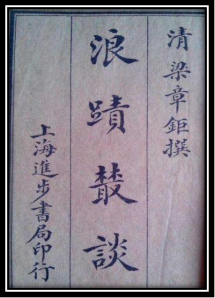 清梁章鉅撰
浪蹟叢談
上海進步書局印行